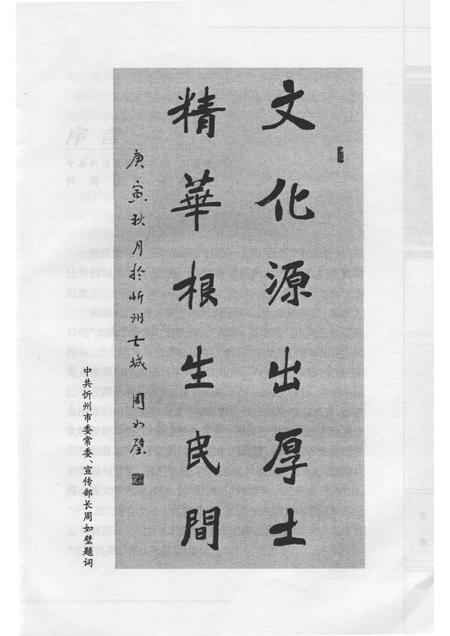 文化源出厚土
精華根生民間
庚寅秋月於忻州古城 周如璧
中共忻州市委常委、宣传部长周如璧题词